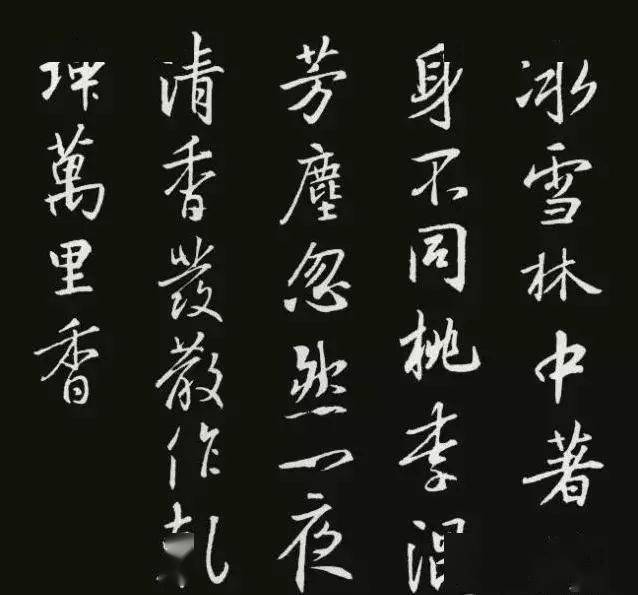 冰雪林中著
身不同桃李混
芳塵忽然一夜
清香發散作乾
坤萬里香